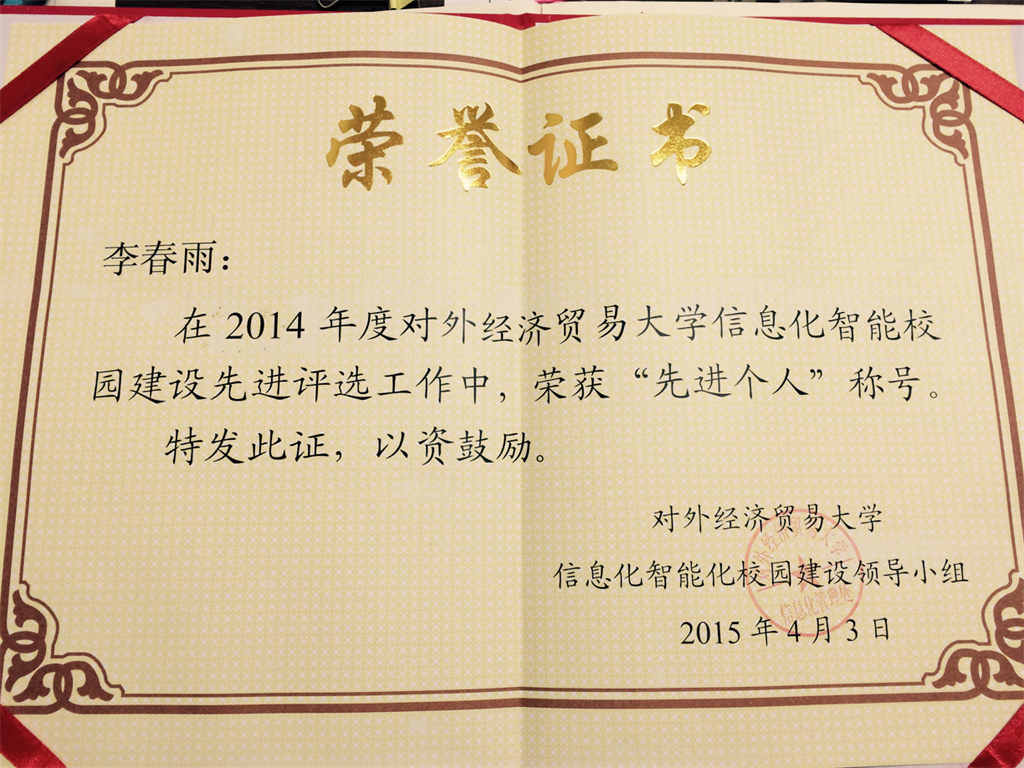 荣誉证书
李春雨：
在 2014 年度对外经济贸易大学信息化智能校
园建设先进评选工作中，荣获“先进个人”称号。
特发此证，以资鼓励。
对外经济贸易大学
信息化智能化校园建设领导小组
2015 年 4 月 3 日
对外经济贸易大学
信息化管理处